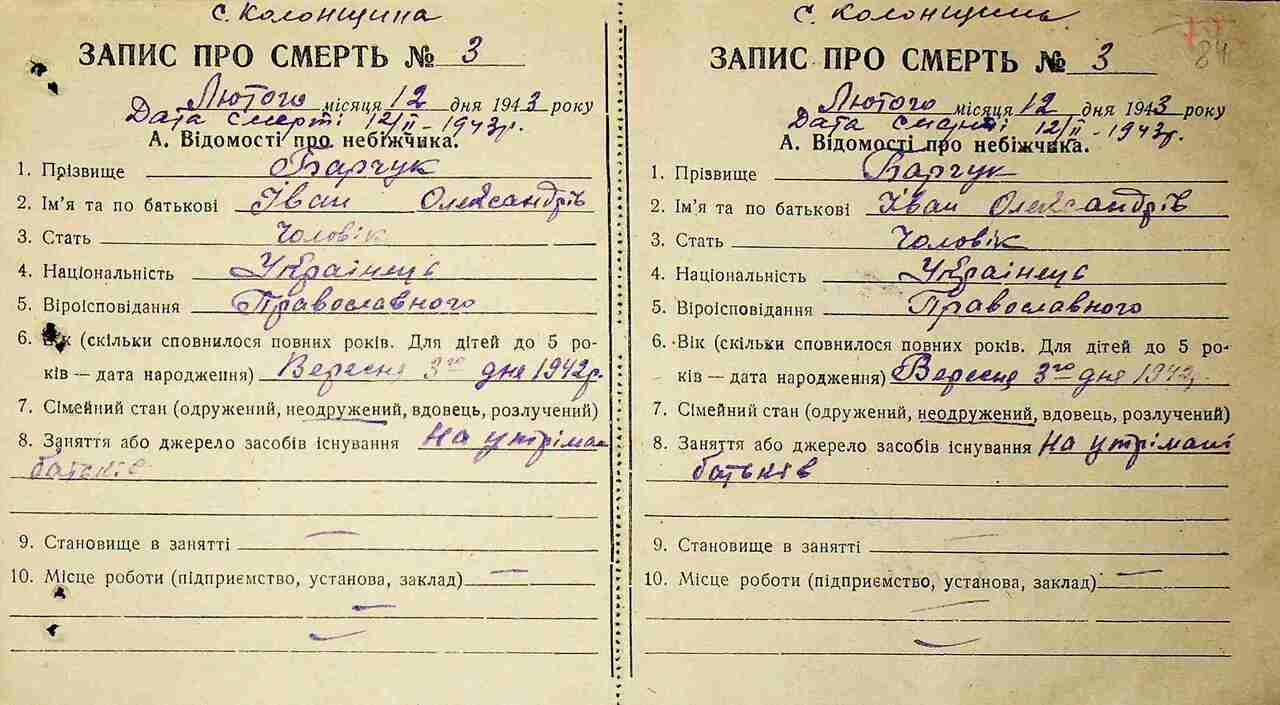 с. Колонщина
ЗАПИС ПРО СМЕРТЬ № 3
Лютого місяця 12 дня 1943 року
Дата смерті 12/II - 1943 г.
А. Відомості про небіжчика.
1. Прізвище Барчук
2. Ім'я та по батькові Іван Олександрів
3. Стать Чоловік
4. Національність Українець
5. Віроісповідання Православного
6. Вік (скільки сповнилося повних років. Для дітей до 5 ро-
ків — дата народження) Вересня 3го дня 1942 р.
7. Сімейний стан (одружений, неодружений, вдовець, розлучений)
8. Заняття або джерело засобів існування На утріман
батьків
9. Становище в занятті —
10. Місце роботи (підприємство, установа, заклад) —
с. Колонщина
ЗАПИС ПРО СМЕРТЬ № 3
84
Лютого місяця 12 дня 1943 року
Дата смерті 12/II - 1943 г.
А. Відомості про небіжчика.
1. Прізвище Барчук
2. Ім'я та по батькові Іван Олександрів
3. Стать Чоловік
4. Національність Українець
5. Віроісповідання Православного
6. Вік (скільки сповнилося повних років. Для дітей до 5 ро-
ків — дата народження) Вересня 3го дня 1942 р.
7. Сімейний стан (одружений, неодружений, вдовець, розлучений)
8. Заняття або джерело засобів існування На утрімані
батьків
9. Становище в занятті
10. Місце роботи (підприємство, установа, заклад) —